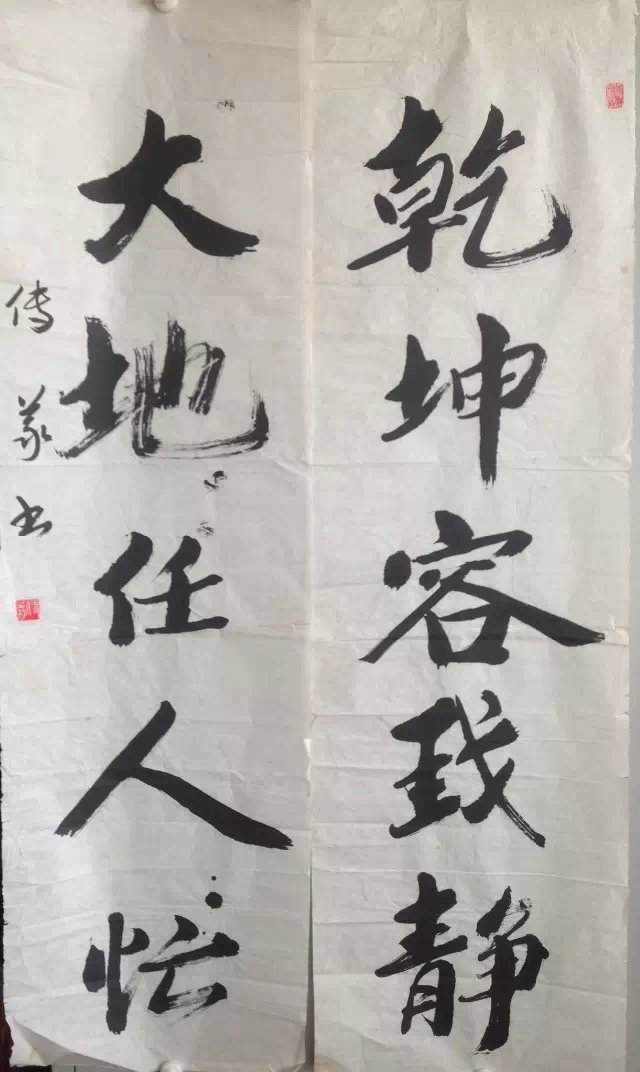 乾坤容我静
大地任人忙
传義书